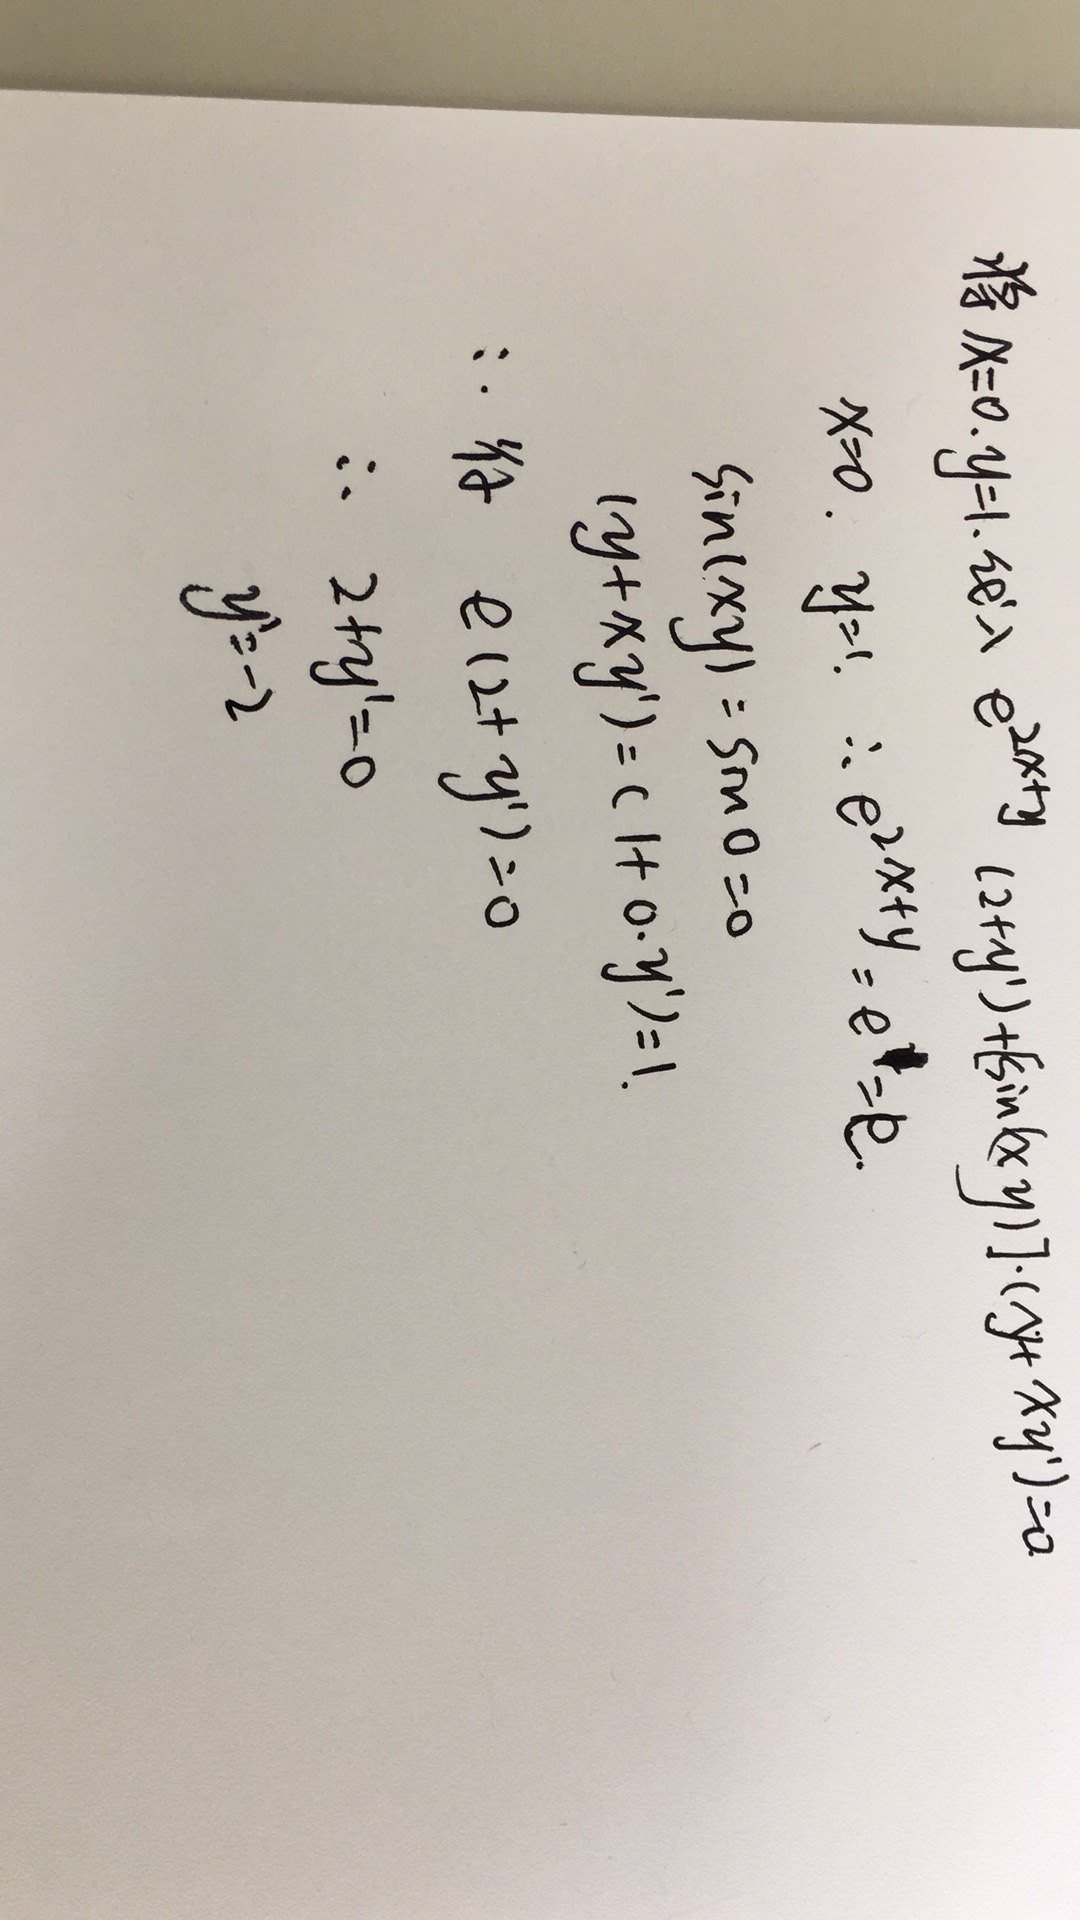 将 x=0. y=1. 代入 e^{2x+y} (2+y')+[sin(xy)]·(y+xy')=0
x=0. y=1. ∴ e^{2x+y} = e^1 = e.
sin(xy) = sin 0 = 0
(y+xy') = (1+0·y') = 1.
∴ 有 e(2+y') = 0
∴ 2+y' = 0
y' = -2